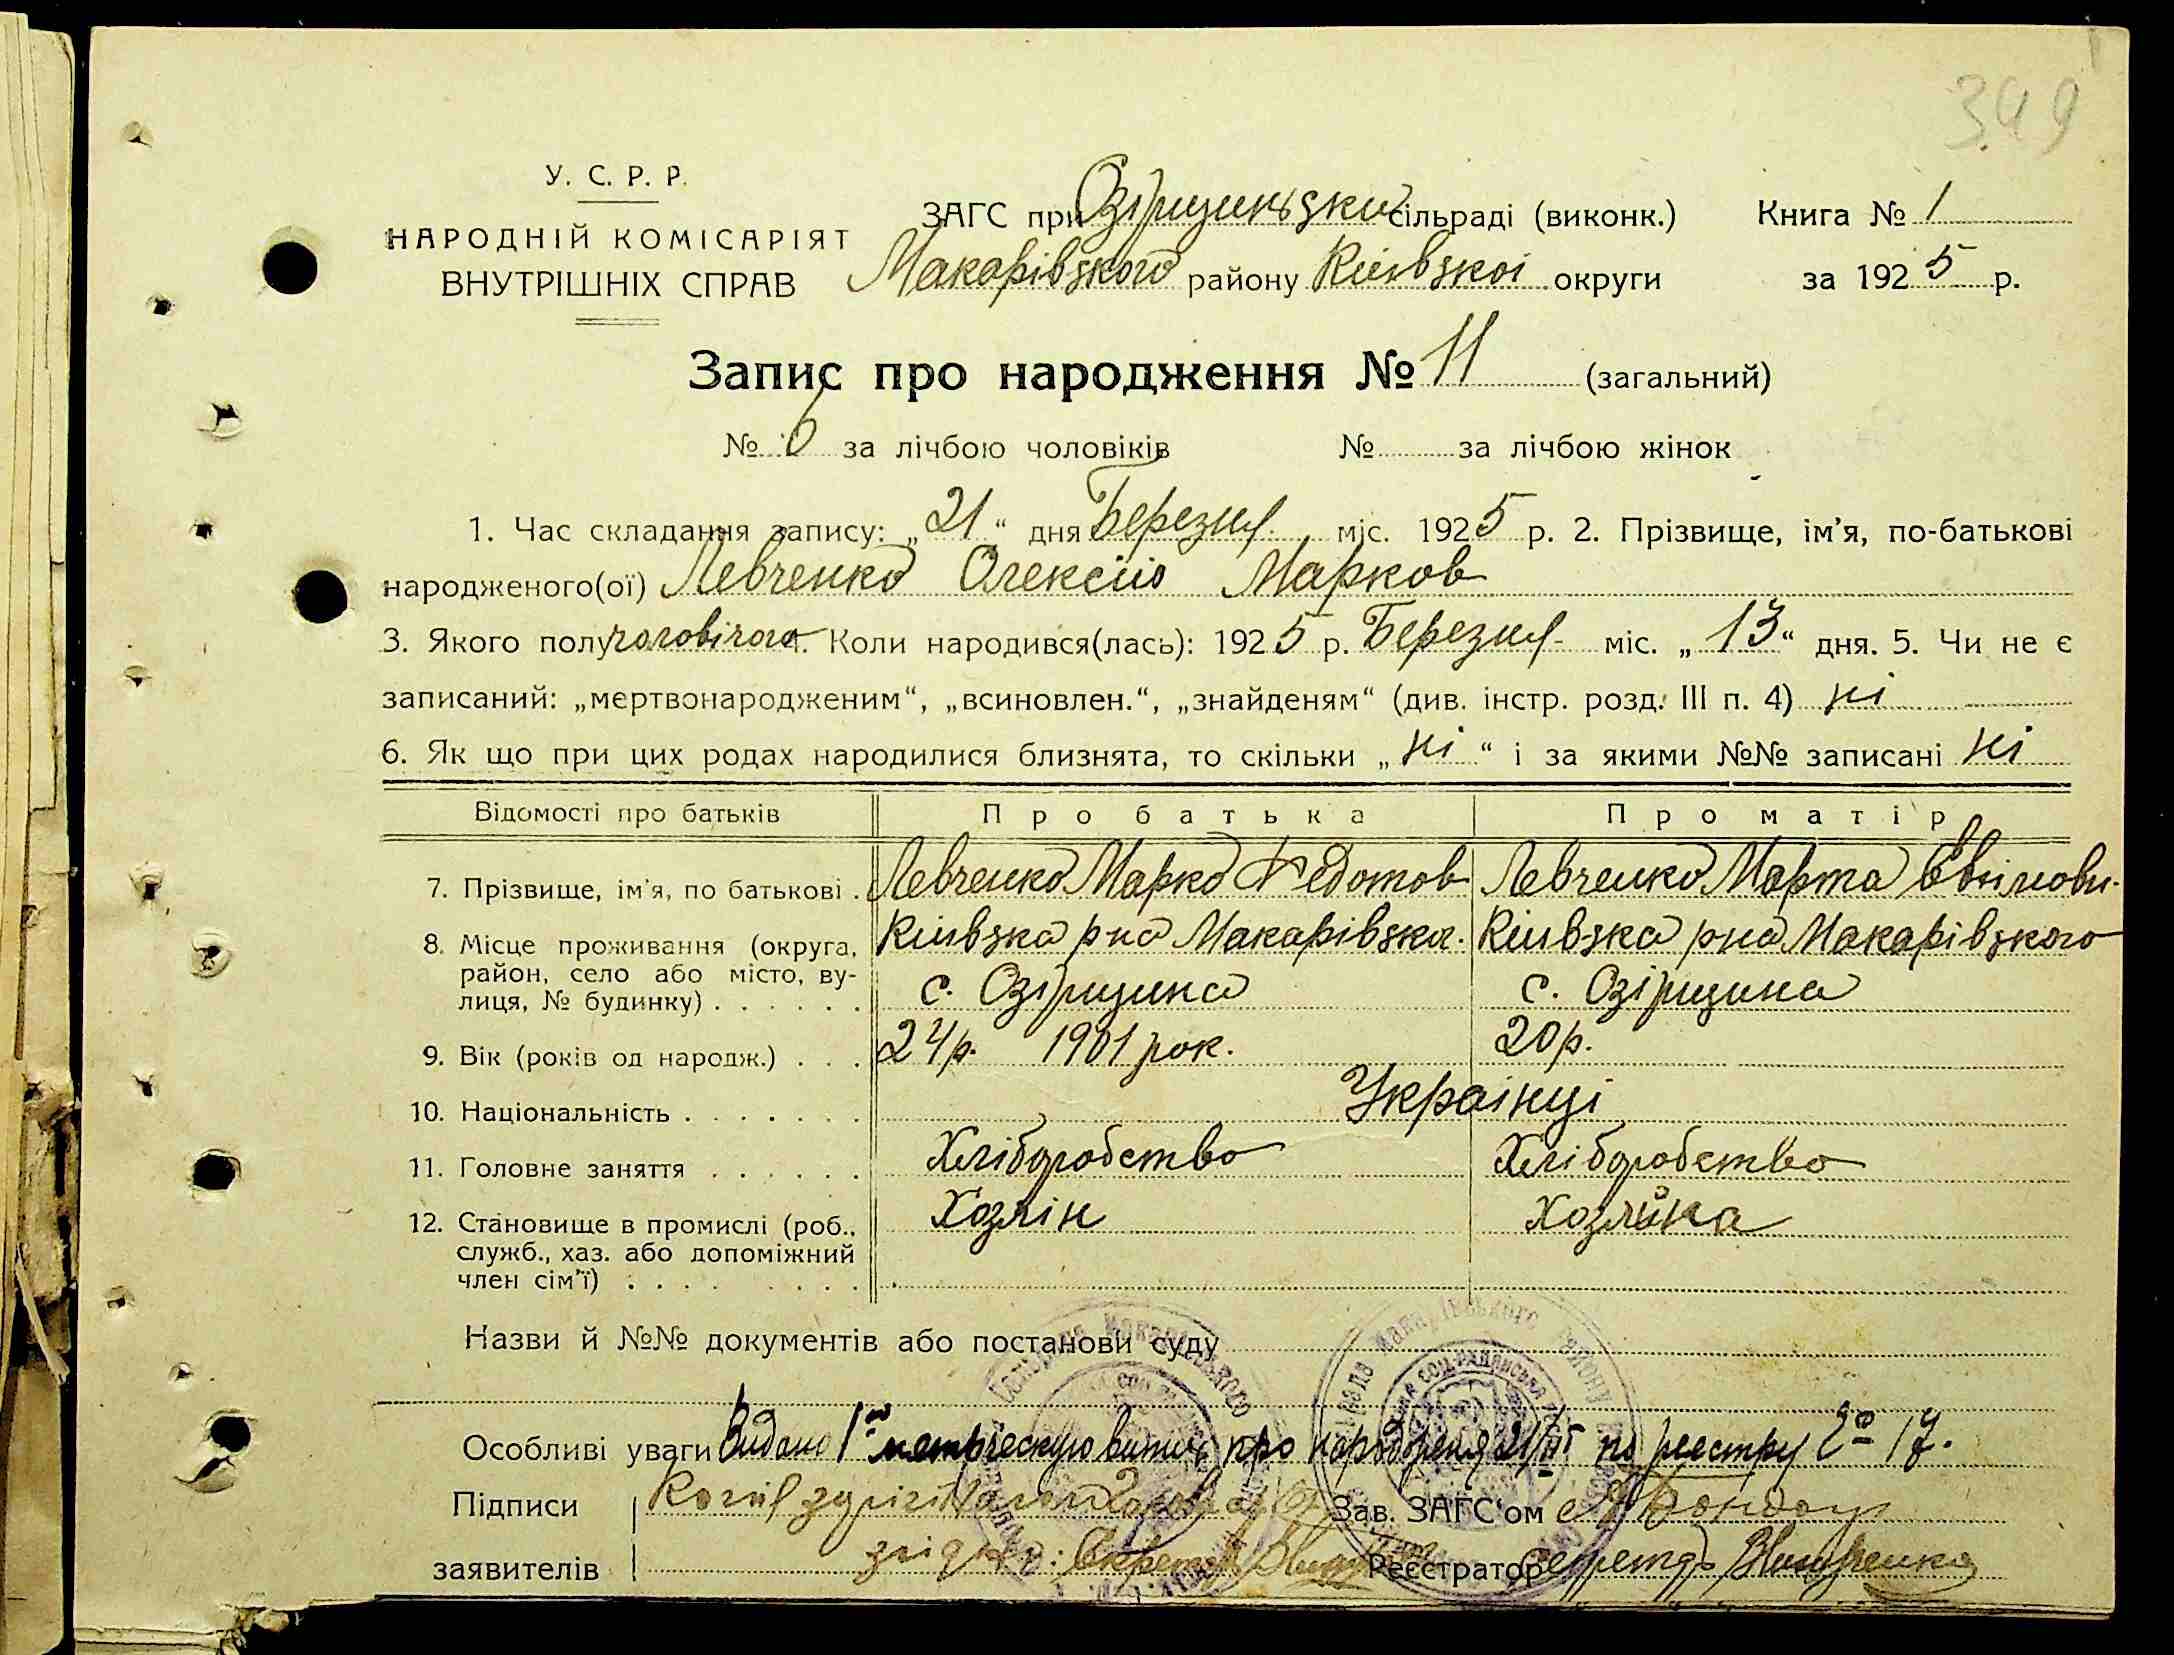 349
У. С. Р. Р.
НАРОДНІЙ КОМІСАРІЯТ
ВНУТРІШНІХ СПРАВ
ЗАГС при Озірщинський сільраді (виконк.) Книга № 1
Макарівського району Київської округи за 1925 р.
Запис про народження № 11 (загальний)
№ 6 за лічбою чоловіків № за лічбою жінок
1. Час складання запису: „21“ дня Березня міс. 1925 р. 2. Прізвище, ім'я, по-батькові
народженого(ої) Левченко Олексій Марков
3. Якого полу чоловічого 4. Коли народився(лась): 1925 р. Березня міс. „13“ дня. 5. Чи не є
записаний: „мертвонародженим“, „всиновлен.“, „знайденям“ (див. інстр. розд. III п. 4) ні
6. Як що при цих родах народилися близнята, то скільки „ні“ і за якими №№ записані ні
Відомості про батьків Про батька Про матір
7. Прізвище, ім'я, по батькові . Левченко Марко Федотов Левченко Марта
8. Місце проживання (округа, Київська рна Макарівська. Київська рна Макарівского
район, село або місто, ву- с. Озірщина с. Озірщина
лиця, № будинку) . . . . . .
9. Вік (років од народж.) . . . 24 р. 1901 рок. 20 р.
10. Національність . . . . . . . Украінці
11. Головне заняття . . . . . . Хліборобство Хліборобство
12. Становище в промислі (роб., Хозяін Хозяйка
служб., хаз. або допоміжний
член сім'ї) . . . . . . . .
Назви й №№ документів або постанови суду
Особливі уваги Видано 1 метрическую випись про народження по реестру № 17.
Підписи Зав. ЗАГС'ом Бондар
заявителів Реєстратор секретарь